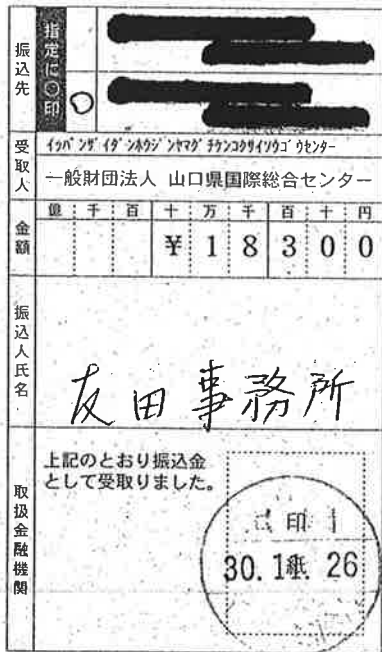 振込先
指定に○印
受取人
イッパンザイダンホウジンヤマグチケンコクサイソウゴウセンター
一般財団法人 山口県国際総合センター
金額
億 千 百 十 万 千 百 十 円
¥ 1 8 3 0 0
振込人氏名
友田事務所
取扱金融機関
上記のとおり振込金
として受取りました。
印
30.1.26
紙